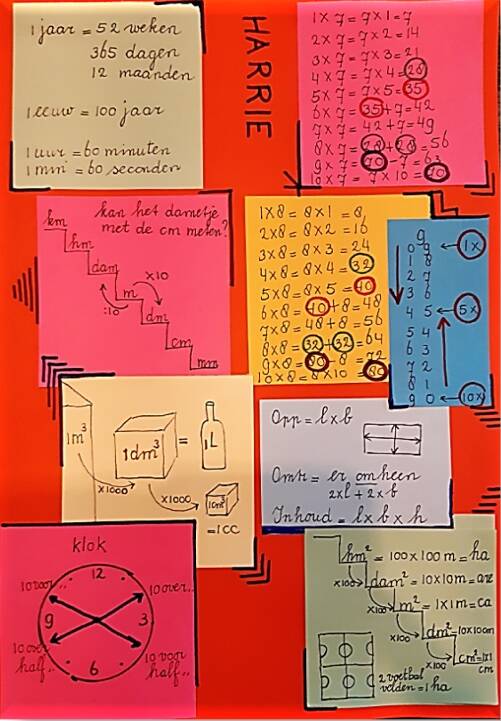 1 jaar = 52 weken
365 dagen
12 maanden
1 eeuw = 100 jaar
1 uur = 60 minuten
1 min = 60 seconden
HARRIE
1 x 7 = 7 x 1 = 7
2 x 7 = 7 x 2 = 14
3 x 7 = 7 x 3 = 21
4 x 7 = 7 x 4 = 28
5 x 7 = 7 x 5 = 35
6 x 7 = 35 + 7 = 42
7 x 7 = 42 + 7 = 49
8 x 7 = 28 + 28 = 56
9 x 7 = 70 - 7 = 63
10 x 7 = 7 x 10 = 70
kan het dametje
met de cm meten?
km
hm
dam
m
dm
cm
mm
x10
:10
1x8 = 8x1 = 8
2x8 = 8x2 = 16
3x8 = 8x3 = 24
4x8 = 8x4 = 32
5x8 = 8x5 = 40
6x8 = 40 + 8 = 48
7x8 = 48 + 8 = 56
8x8 = 32 + 32 = 64
9x8 = 80 - 8 = 72
10x8 = 8x10 = 80
9
0 9 1x
1 8
2 7
3 6
4 5 5x
5 4
6 3
7 2
8 1
9 0 10x
1m³
1dm³ = 1L
x1000
x1000
1cm³
= 1CC
Opp = l x b
Omtr = er omheen
2xl + 2xb
Inhoud = l x b x h
klok
12
3
6
9
10 voor..
10 over..
10 over
half..
10 voor
half..
hm² = 100 x 100 m = ha
x100
dam² = 10x10m = are
x100
m² = 1x1m = ca
x100
dm² = 10x10cm
x100
cm² = 1x1
cm
2 voetbal
velden = 1 ha